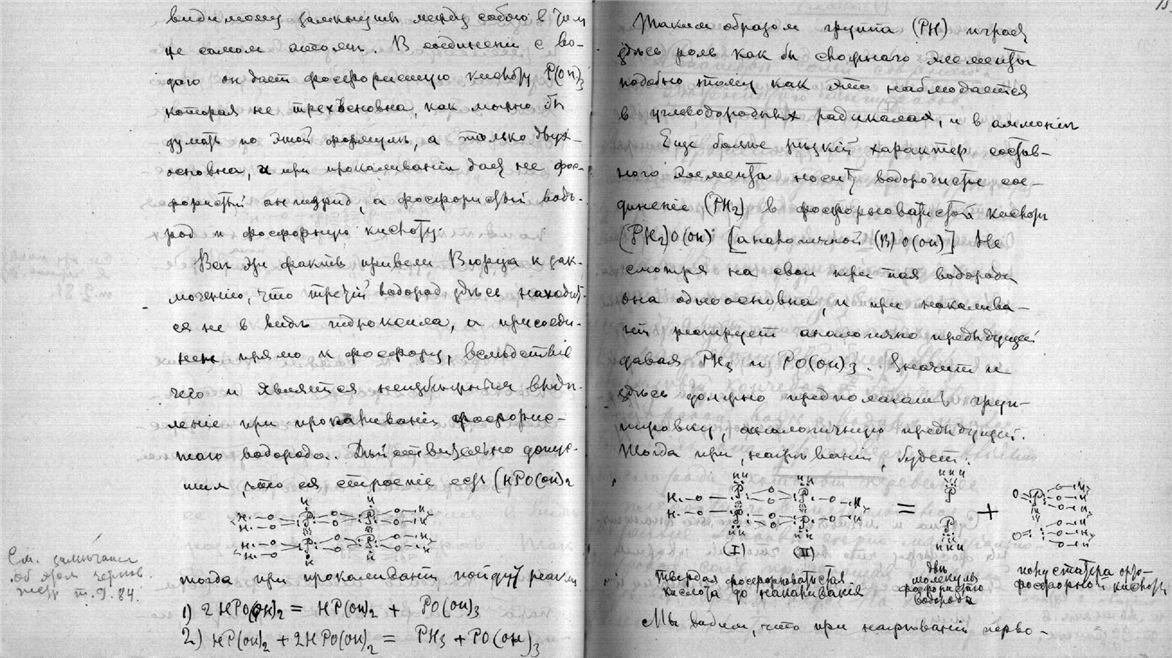 видимому замкнувши между собою в том
же самом атоме. В соединении с во-
дою он дает фосфористую кислоту P(OH)3
которая не трехосновна, как можно бы
думать по этой формуле, а только двух-
основна, и при прокаливании дает не фос-
фористый ангидрид, а фосфористый водо-
род и фосфорную кислоту.
Все эти факты привели Вюрца к зак-
лючению, что третий водород здесь находит-
ся не в виде гидроксила, а присоеди-
нен прямо к фосфору, вследствие
чего и является неизбежным выде-
ление при прокаливании фосфорис-
того водорода. Действительно допус-
тим, что ея строение есть (HPO(OH)2
См. замечания
об этом
т. 9. 84.
тогда при прокаливании пойдут реакции
1) 2HPO(OH)2 = HP(OH)2 + PO(OH)3
2) HP(OH)2 + 2HPO(OH)2 = PH3 + PO(OH)3
Таким образом группа (PH) играет
здесь роль как бы сложнаго элемента
подобно тому как это наблюдается
в углеводородных радикалах, и в аммонии
Еще более резкий характер состав-
ного элемента носит водородистое сое-
динение (PH2) в фосфорноватистой кислоте
(PH2)O(OH) [аналогичной (R)O(OH)] Не
смотря на свои три пая водорода
она одноосновна, и при накалива-
нии реагирует аналогично предыдущей
давая PH3 и PO(OH)3. Значит и
здесь должно предполагать груп-
пировку, аналогичную предыдущей.
Тогда при нагревании, будет:
= +
(I) (II)
твердая фосфорноватистая
кислота до накаливания
две
молекулы
фосфористого
водорода
полустатера орто-
фосфорной кислоты
Мы видим, что при нагревании перво-